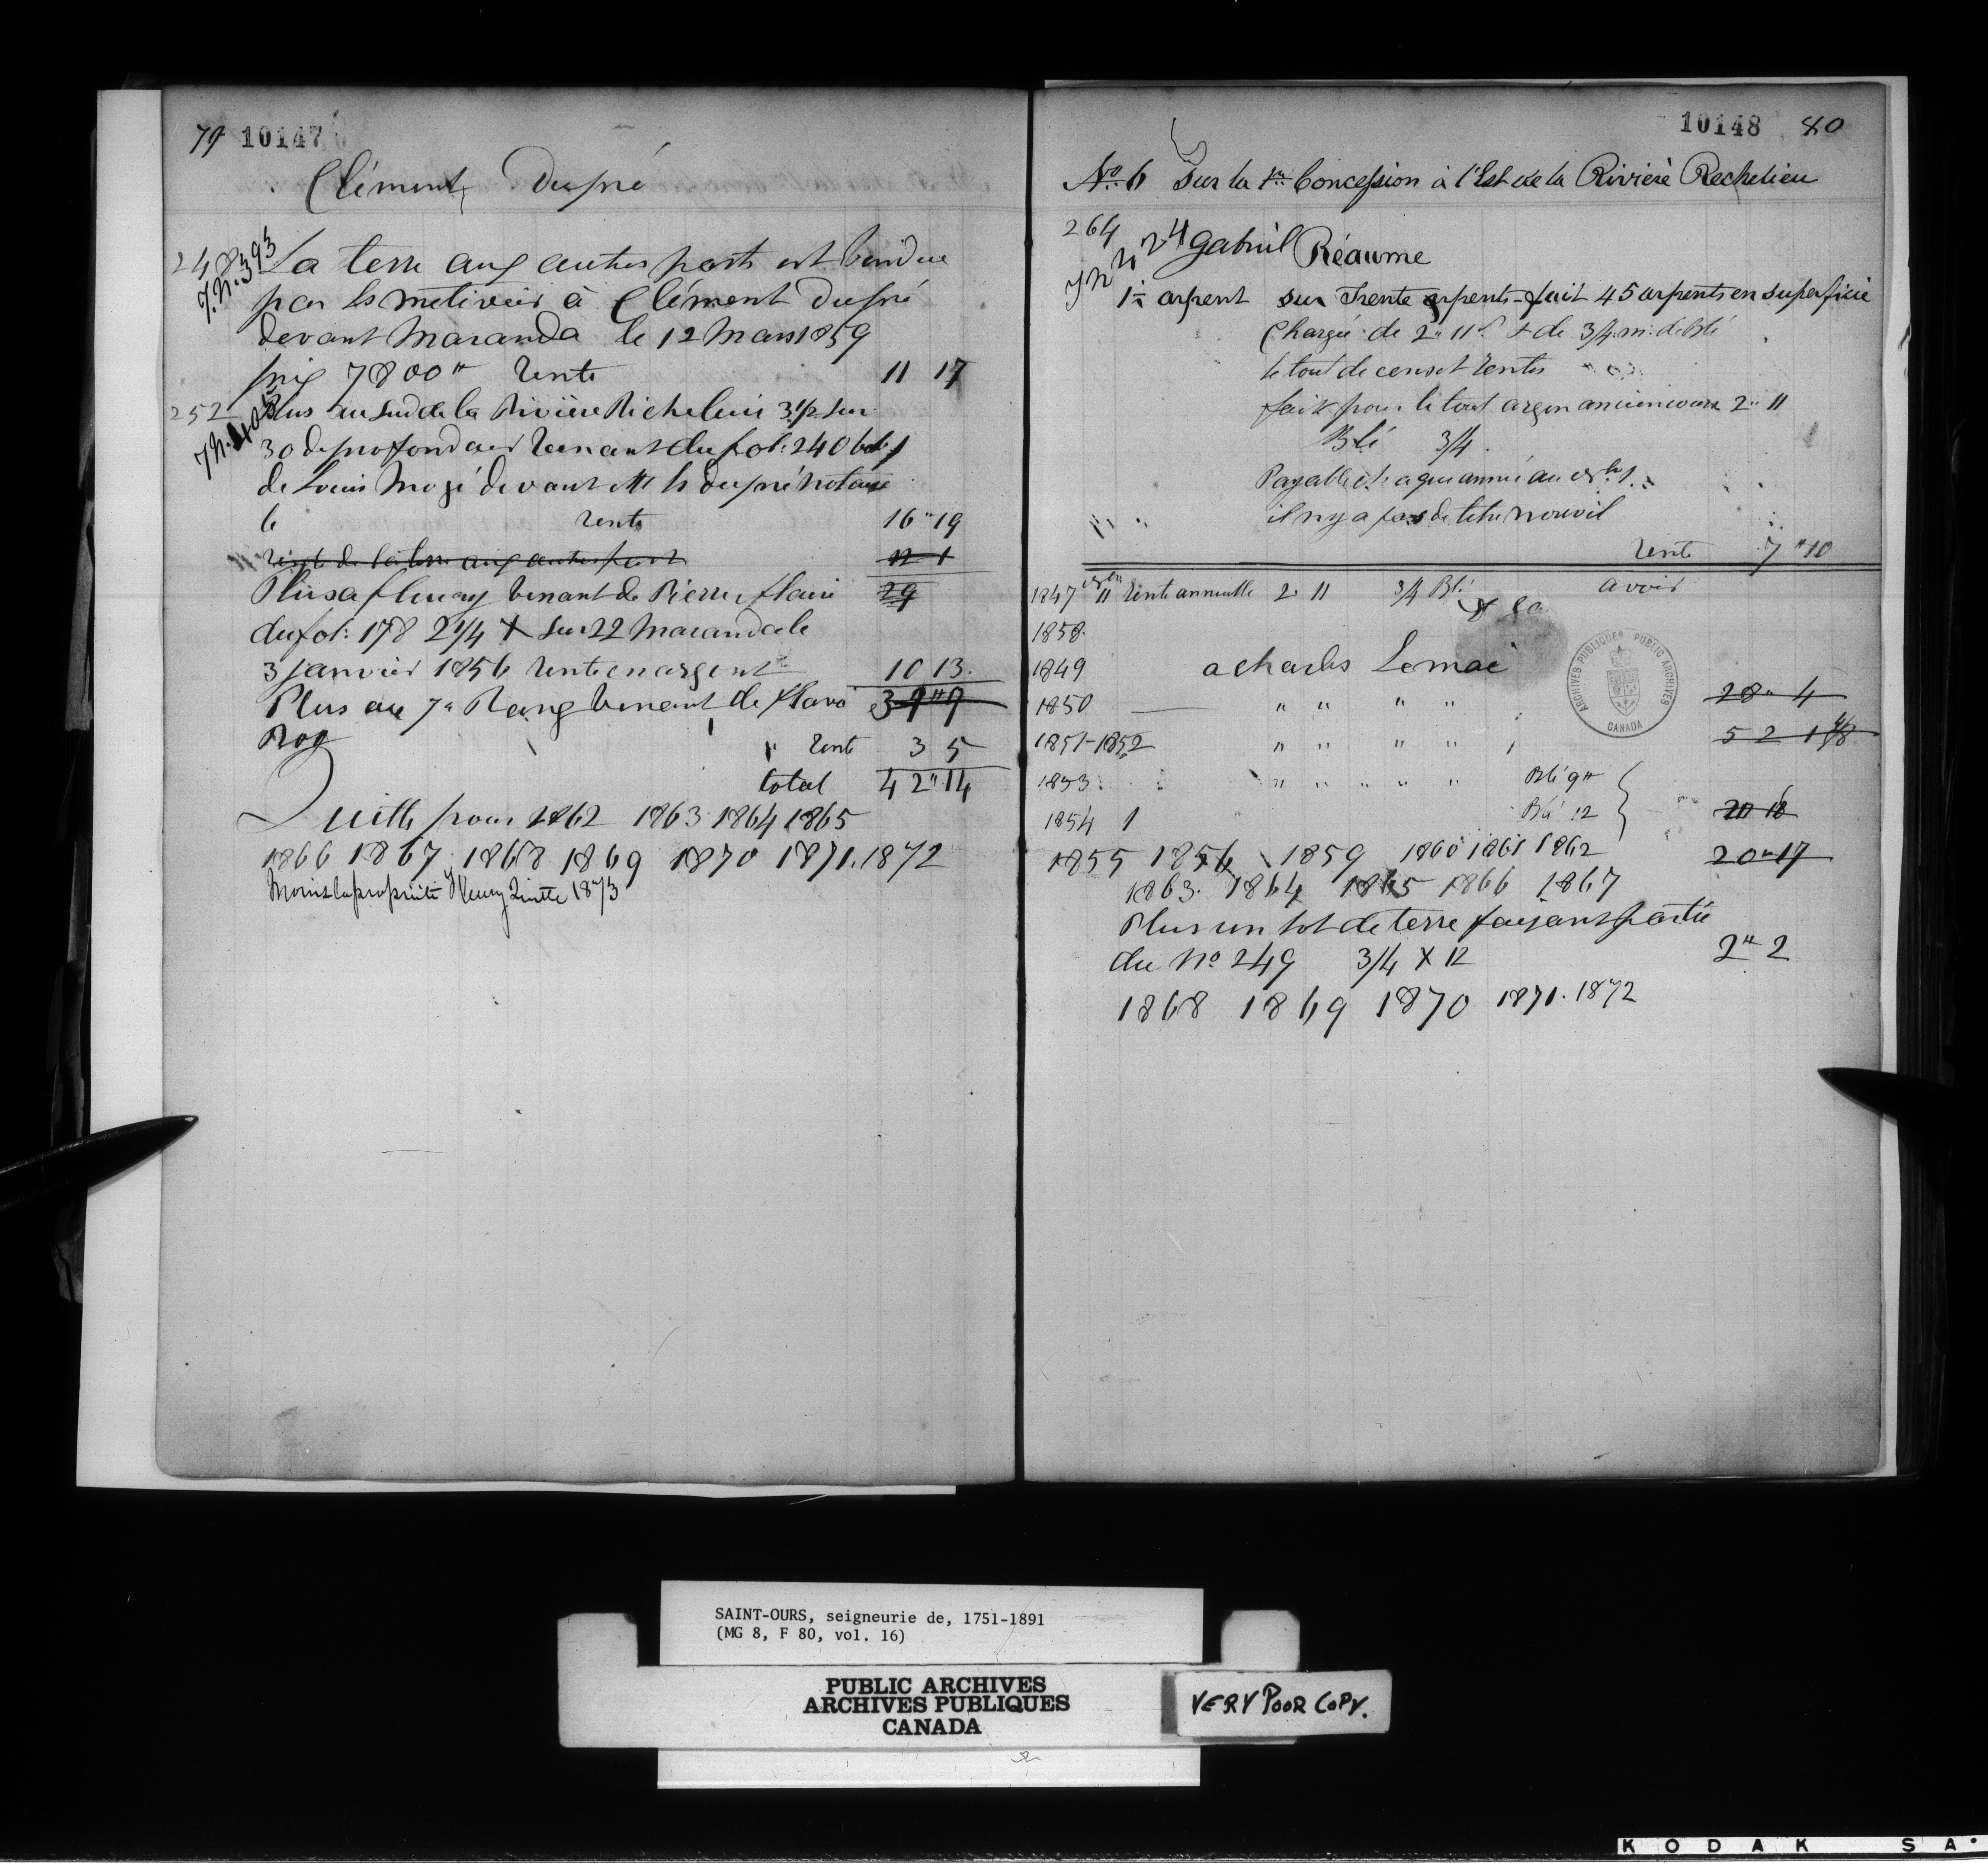 79 10147
Clément Dupré
248 La terre aux autres parts est vendue
J.N. 393
par ls metivier à Clément Dupré
devant Maranda le 12 Mars 1859
prix 7800" rente 11 17
252 Plus au sud de la Rivière Richelieu 3 1/2 sur
30 de profondeur venant du fol: 240
de Louis Mogé devant Mr ls dupré notaire
le rente 16"19
rente de la terre aux autres part 12 1
Plus a fleury venant de Pierre flavi 29
du fol: 178 2 1/4 X sur 22 Maranda le
3 janvier 1856 rente en argent 10 13.
Plus au 7e Rang venant de flavi 39"9
Roy
" rente 3 5
total 42"14
Quitte pour 1862 1863 1864 1865
1866 1867 1868 1869 1870 1871. 1872
Moins la propriété fleury Quitte 1873
10148 80
No. 6 Sur la 1re Concession à l'Est de la Rivière Rechelieu
264
J N 424 gabriel Réaume
1 1/2 arpent sur Trente arpents fait 45 arpents en superficie
Chargée de 2" 11 & de 3/4 m: de Blé
le tout de cens et rentes
fait pour le tout argen ancien cours 2" 11
Blé 3/4
Payable chaque année au
il ny a pas de titre nouvel
rente 7"10
1847 11 rente annuelle 2" 11 3/4 Blé avoir
1858.
1849 a charles Lemai
1850 " " " " 28" 4
1851-1852 " " " " 52 1
1853 " " " " " Blé 9"
1854 1 Blé 12 20 18
1855 1856 1859 1860 1861 1862 20"17
1863. 1864 1865 1866 1867
Plus un lot de terre faisant partie
du No 249 3/4 X 12 2" 2
1868 1869 1870 1871. 1872
ARCHIVES PUBLIQUES PUBLIC ARCHIVES
CANADA
SAINT-OURS, seigneurie de, 1751-1891
(MG 8, F 80, vol. 16)
PUBLIC ARCHIVES
ARCHIVES PUBLIQUES
CANADA
VERY POOR COPY.
KODAK SA